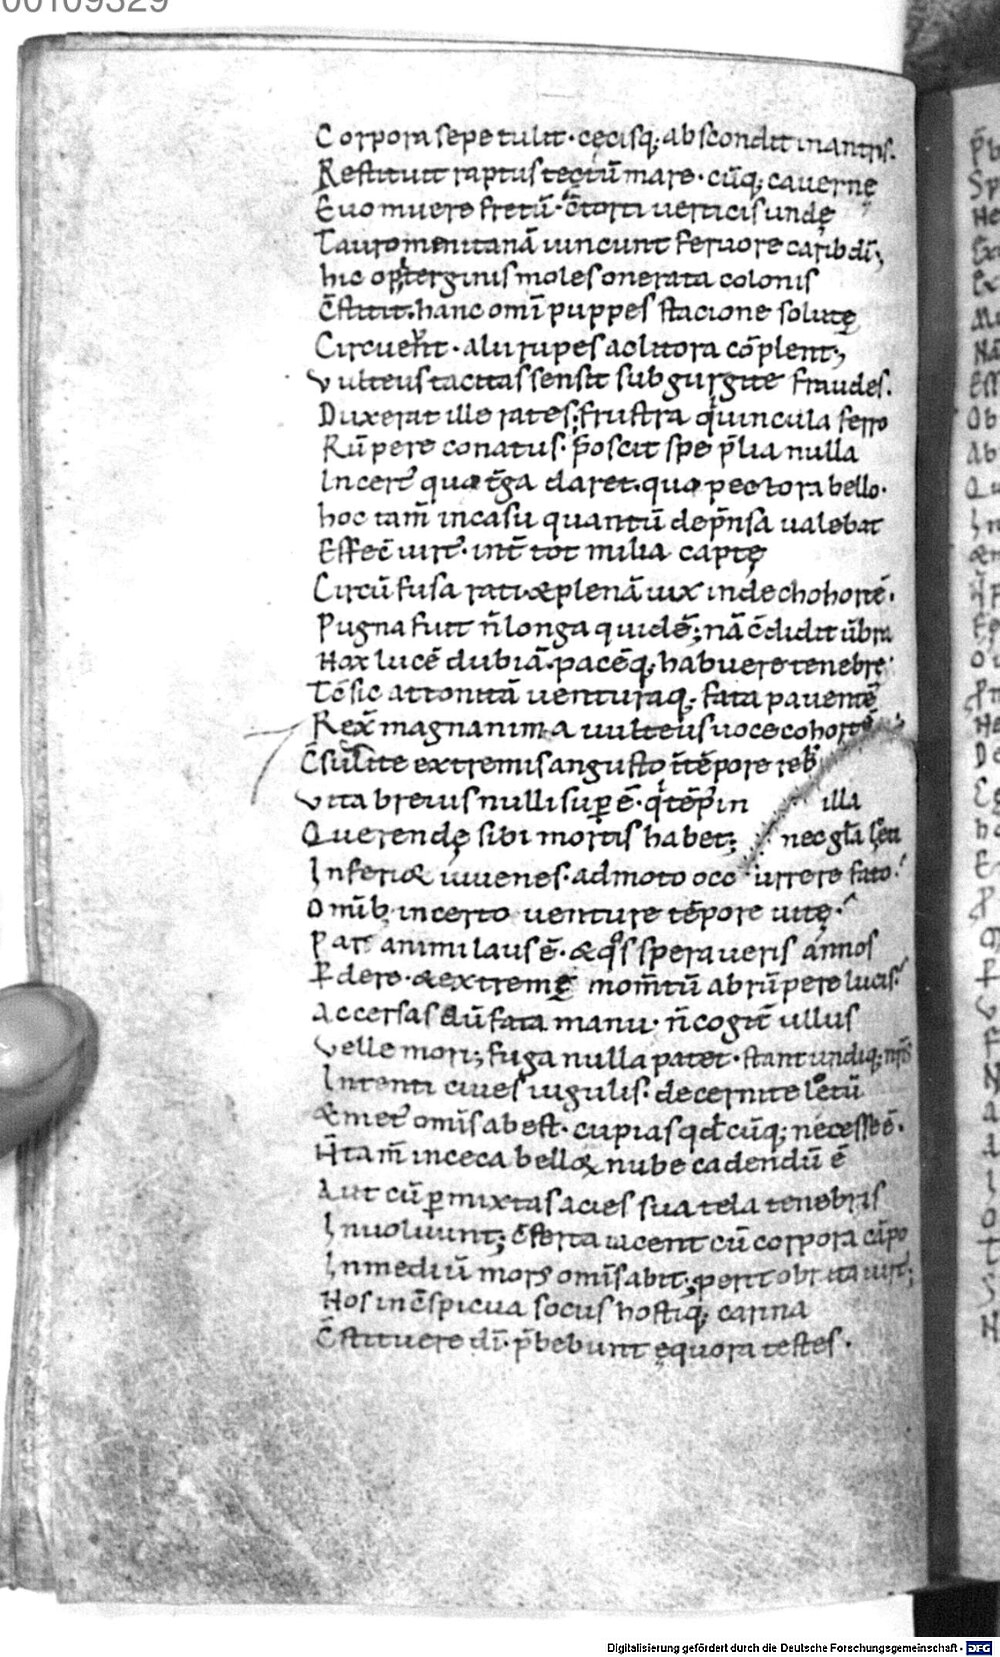 00109329
Corpora sepe tulit · cęcisq; abscondit in antris.
Restituit raptus tectū mare · cūq; cauernę
Euomuere fretū · c̄torti uerticis undę
Tauromenitanā uincunt feruore caribdī;
hic opiterginis moles onerata colonis
C̄stitit. hanc omī puppes stacione solutę
Circuer̄t · alii rupes ac litora cōplent;
Vulteus tacitas sensit sub gurgite fraudes.
Duxerat ille rates; frustra qͥ uincula ferro
Rūpere conatus · p̄oscit spe p̄lia nulla
Incert᷒ qua t̄ga daret. qua pectora bello.
hoc tam̄ in casu quantū dep̄nsa ualebat
Effec̄ uirt᷒ · int̄ tot milia captę
Circūfusa rati & plenā uix inde chohortē.
Pugna fuit n̄ longa quidē; nā c̄didit ūbra
Nox lucē dubiā. pacēq; habuere tenebrę
Tc̄ sic attonitā venturaq; fata pauentē
Rex̄ magnanima uulteus uoce cohortē
C̄sulite extremis angusto ī tēpore reb;
Vita breuis nulli sup ē · qͥ tēp᷒ in illa
Querendę sibi mortis habet; nec gl̄a lęti
Inferior iuuenes · admoto occurrere fato.
Omīb; incerto venture tēpore uitę.
Par animi laus ē · & qͦs speraueris annos
Pdere · & extremę mom̄tū abrūpere lucis.
Accersas dū fata manu · n̄ cogit᷒ ullus
Velle mori; fuga nulla patet · stant undiq; nr̄is
Intenti ciues iugulis · decernite letū
& met᷒ omīs abest · cupias qd̄cūq; necesse ē.
N̄ tam̄ in ceca bellor nube cadendū ē
Aut cū pmixtas acies sua tela tenebris
Inuoluunt; c̄ferta iacent cū corpora cāpo
In mediū mors omīs abit; perit obruta uirt᷒;
Nos in c̄spicua sociis hostiq; carina
C̄stituere dī · p̄bebunt ęquora testes.
Digitalisierung gefördert durch die Deutsche Forschungsgemeinschaft - DFG